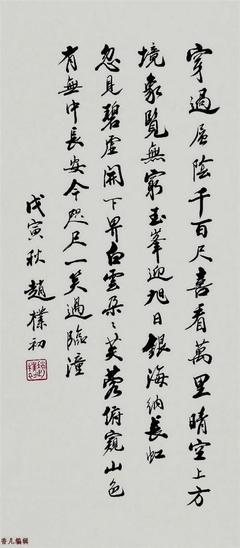 穿過層陰千百尺喜看萬里晴空上方
境象覽無窮玉峯迎旭日銀海納長虹
忽見碧虛開下界白雲朵々芙蓉俯窺山色
有無中長安今咫尺一笑過臨潼
戊寅秋 趙樸初
香凡編輯